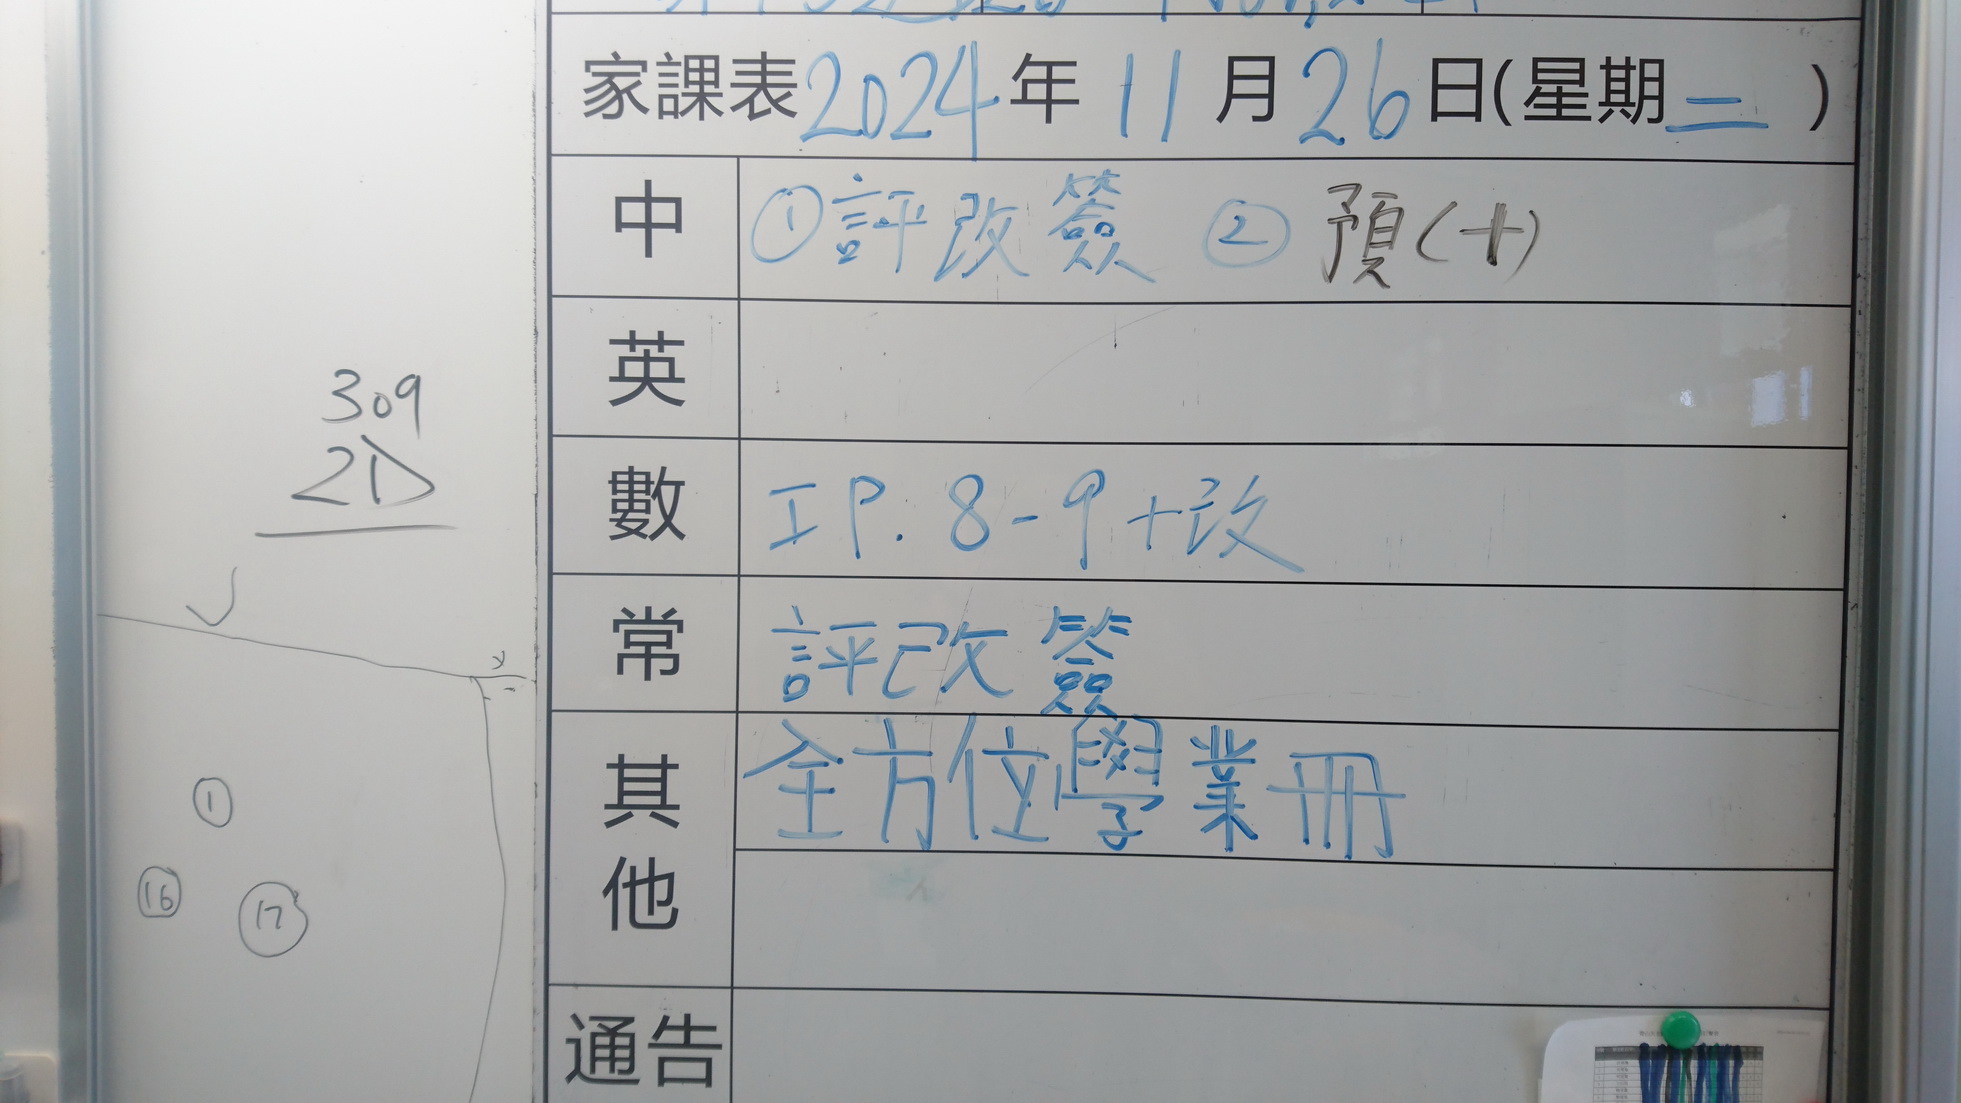 家課表2024年11月26日(星期二)
中 ①評改簽 ②預(十)
英
數 工P.8-9+改
常 評改簽
其他 全方位學業冊
通告
309
2D
①
⑯ ⑰